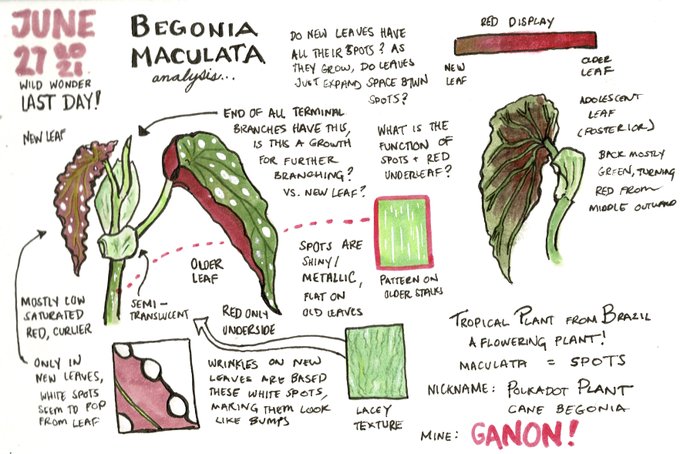 JUNE
27 2021
WILD WONDER
LAST DAY!
BEGONIA
MACULATA
analysis...
DO NEW LEAVES HAVE
ALL THEIR SPOTS? AS
THEY GROW, DO LEAVES
JUST EXPAND SPACE BTWN
SPOTS?
RED DISPLAY
NEW
LEAF
OLDER
LEAF
NEW LEAF
END OF ALL TERMINAL
BRANCHES HAVE THIS,
IS THIS A GROWTH
FOR FURTHER
BRANCHING?
VS. NEW LEAF?
WHAT IS THE
FUNCTION OF
SPOTS + RED
UNDERLEAF?
ADOLESCENT
LEAF
(POSTERIOR)
BACK MOSTLY
GREEN, TURNING
RED FROM
MIDDLE OUTWARD
MOSTLY LOW
SATURATED
RED, CURLIER
SEMI-
TRANSLUCENT
OLDER
LEAF
RED ONLY
UNDERSIDE
SPOTS ARE
SHINY/
METALLIC,
FLAT ON
OLD LEAVES
PATTERN ON
OLDER STALKS
ONLY IN
NEW LEAVES,
WHITE SPOTS
SEEM TO POP
FROM LEAF
WRINKLES ON NEW
LEAVES ARE BASED
THESE WHITE SPOTS,
MAKING THEM LOOK
LIKE BUMPS
LACEY
TEXTURE
TROPICAL PLANT FROM BRAZIL
A FLOWERING PLANT!
MACULATA = SPOTS
NICKNAME: POLKADOT PLANT
CANE BEGONIA
MINE: GANON!